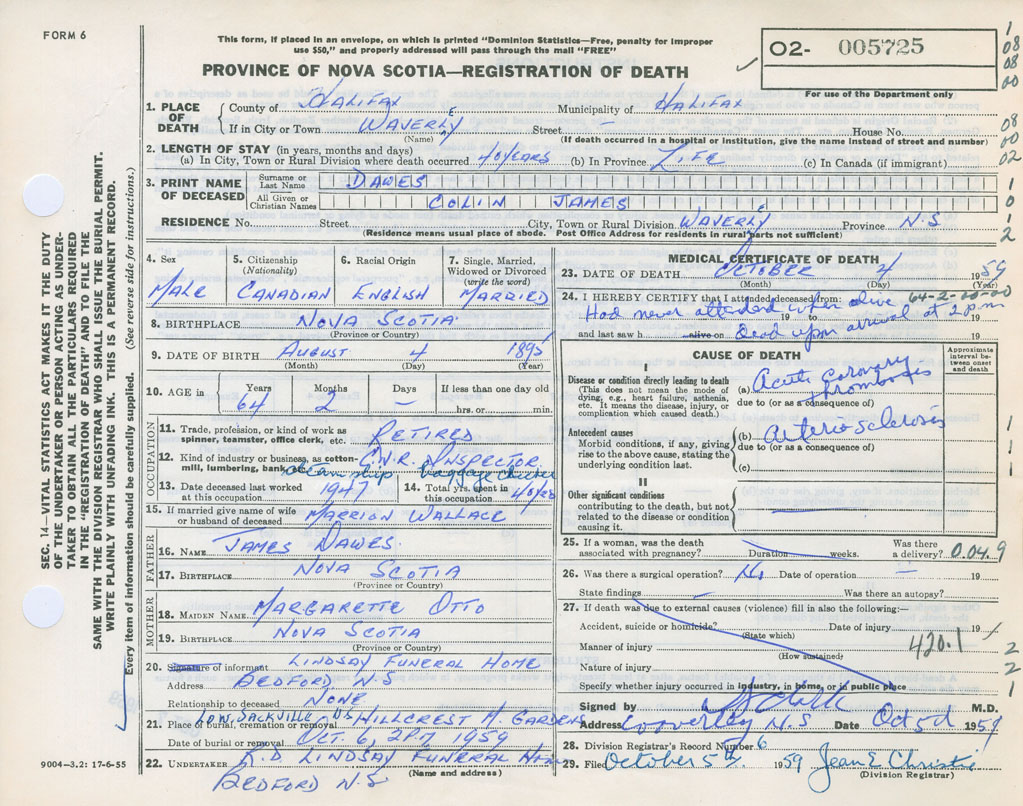 FORM 6
This form, if placed in an envelope, on which is printed "Dominion Statistics—Free, penalty for improper
use $50," and properly addressed will pass through the mail "FREE"
O2- 005725
For use of the Department only
PROVINCE OF NOVA SCOTIA—REGISTRATION OF DEATH
1
08
08
00
08
00
02
1
0
1
2
SEC. 14—VITAL STATISTICS ACT MAKES IT THE DUTY
OF THE UNDERTAKER OR PERSON ACTING AS UNDER-
TAKER TO OBTAIN ALL THE PARTICULARS REQUIRED
IN THE "REGISTRATION OF DEATH" AND TO FILE THE
SAME WITH THE DIVISION REGISTRAR WHO SHALL ISSUE THE BURIAL PERMIT.
WRITE PLAINLY WITH UNFADING INK. THIS IS A PERMANENT RECORD.
Every item of information should be carefully supplied. (See reverse side for instructions.)
1. PLACE OF DEATH
County of HALIFAX Municipality of HALIFAX
If in City or Town WAVERLEY Street — House No.
(Name) (If death occurred in a hospital or institution, give the name instead of street and number)
2. LENGTH OF STAY (in years, months and days)
(a) In City, Town or Rural Division where death occurred 40 YEARS (b) In Province LIFE (c) In Canada (if immigrant)
3. PRINT NAME OF DECEASED
Surname or Last Name DAWES
All Given or Christian Names COLIN JAMES
RESIDENCE No. Street City, Town or Rural Division WAVERLEY Province N.S
(Residence means usual place of abode. Post Office Address for residents in rural parts not sufficient)
4. Sex
MALE
5. Citizenship
(Nationality)
CANADIAN
6. Racial Origin
ENGLISH
7. Single, Married,
Widowed or Divorced
(write the word)
MARRIED
8. BIRTHPLACE NOVA SCOTIA
(Province or Country)
9. DATE OF BIRTH AUGUST 4 1895
(Month) (Day) (Year)
10. AGE in Years Months Days If less than one day old
64 2 — hrs. or min.
OCCUPATION
11. Trade, profession, or kind of work as
spinner, teamster, office clerk, etc. RETIRED
12. Kind of industry or business, as cotton-
mill, lumbering, bank, C.N.R. INSPECTOR
baggage
13. Date deceased last worked
at this occupation 1947
14. Total yrs. spent in
this occupation
15. If married give name of wife
or husband of deceased MARRION WALLACE
FATHER
16. NAME JAMES DAWES
17. BIRTHPLACE NOVA SCOTIA
(Province or Country)
MOTHER
18. MAIDEN NAME MARGARETTE OTTO
19. BIRTHPLACE NOVA SCOTIA
(Province or Country)
20. Signature of informant LINDSAY FUNERAL HOME
Address BEDFORD N.S
Relationship to deceased NONE
21. Place of burial, cremation or removal LOW. SACKVILLE NS HILLCREST M. GARDENS
Date of burial or removal OCT. 6, 2 P.M 1959
22. UNDERTAKER R.D. LINDSAY FUNERAL HOME
(Name and address)
BEDFORD N.S
9004—3.2: 17-6-55
MEDICAL CERTIFICATE OF DEATH
23. DATE OF DEATH OCTOBER 4 1959
(Month) (Day) (Year)
24. I HEREBY CERTIFY that I attended deceased from: 64-2-00-00
Had never attended, upon alive
19
to 19
and last saw h alive on Dead upon arrival at 2 p.m 19
CAUSE OF DEATH
Approximate
interval be-
tween onset
and death
I
Disease or condition directly leading to death
(This does not mean the mode of
dying, e.g., heart failure, asthenia,
etc. It means the disease, injury, or
complication which caused death.)
(a) Acute coronary thrombosis
due to (or as a consequence of)
Antecedent causes
Morbid conditions, if any, giving
rise to the above cause, stating the
underlying condition last.
(b) Arteriosclerosis
due to (or as a consequence of)
(c)
1
1
1
II
Other significant conditions
contributing to the death, but not
related to the disease or condition
causing it.
25. If a woman, was the death
associated with pregnancy? Duration weeks. Was there
a delivery? 0.04.9
26. Was there a surgical operation? No Date of operation — 19
State findings — Was there an autopsy?
27. If death was due to external causes (violence) fill in also the following:—
Accident, suicide or homicide? Date of injury 19
(State which)
Manner of injury 420.1
(How sustained)
Nature of injury
Specify whether injury occurred in industry, in home, or in public place
2
2
1
Signed by M.D.
Address Waverley N.S Date Oct 5th 1959
28. Division Registrar's Record Number 6
29. Filed October 5th 1959 Jean E. Christie
(Division Registrar)